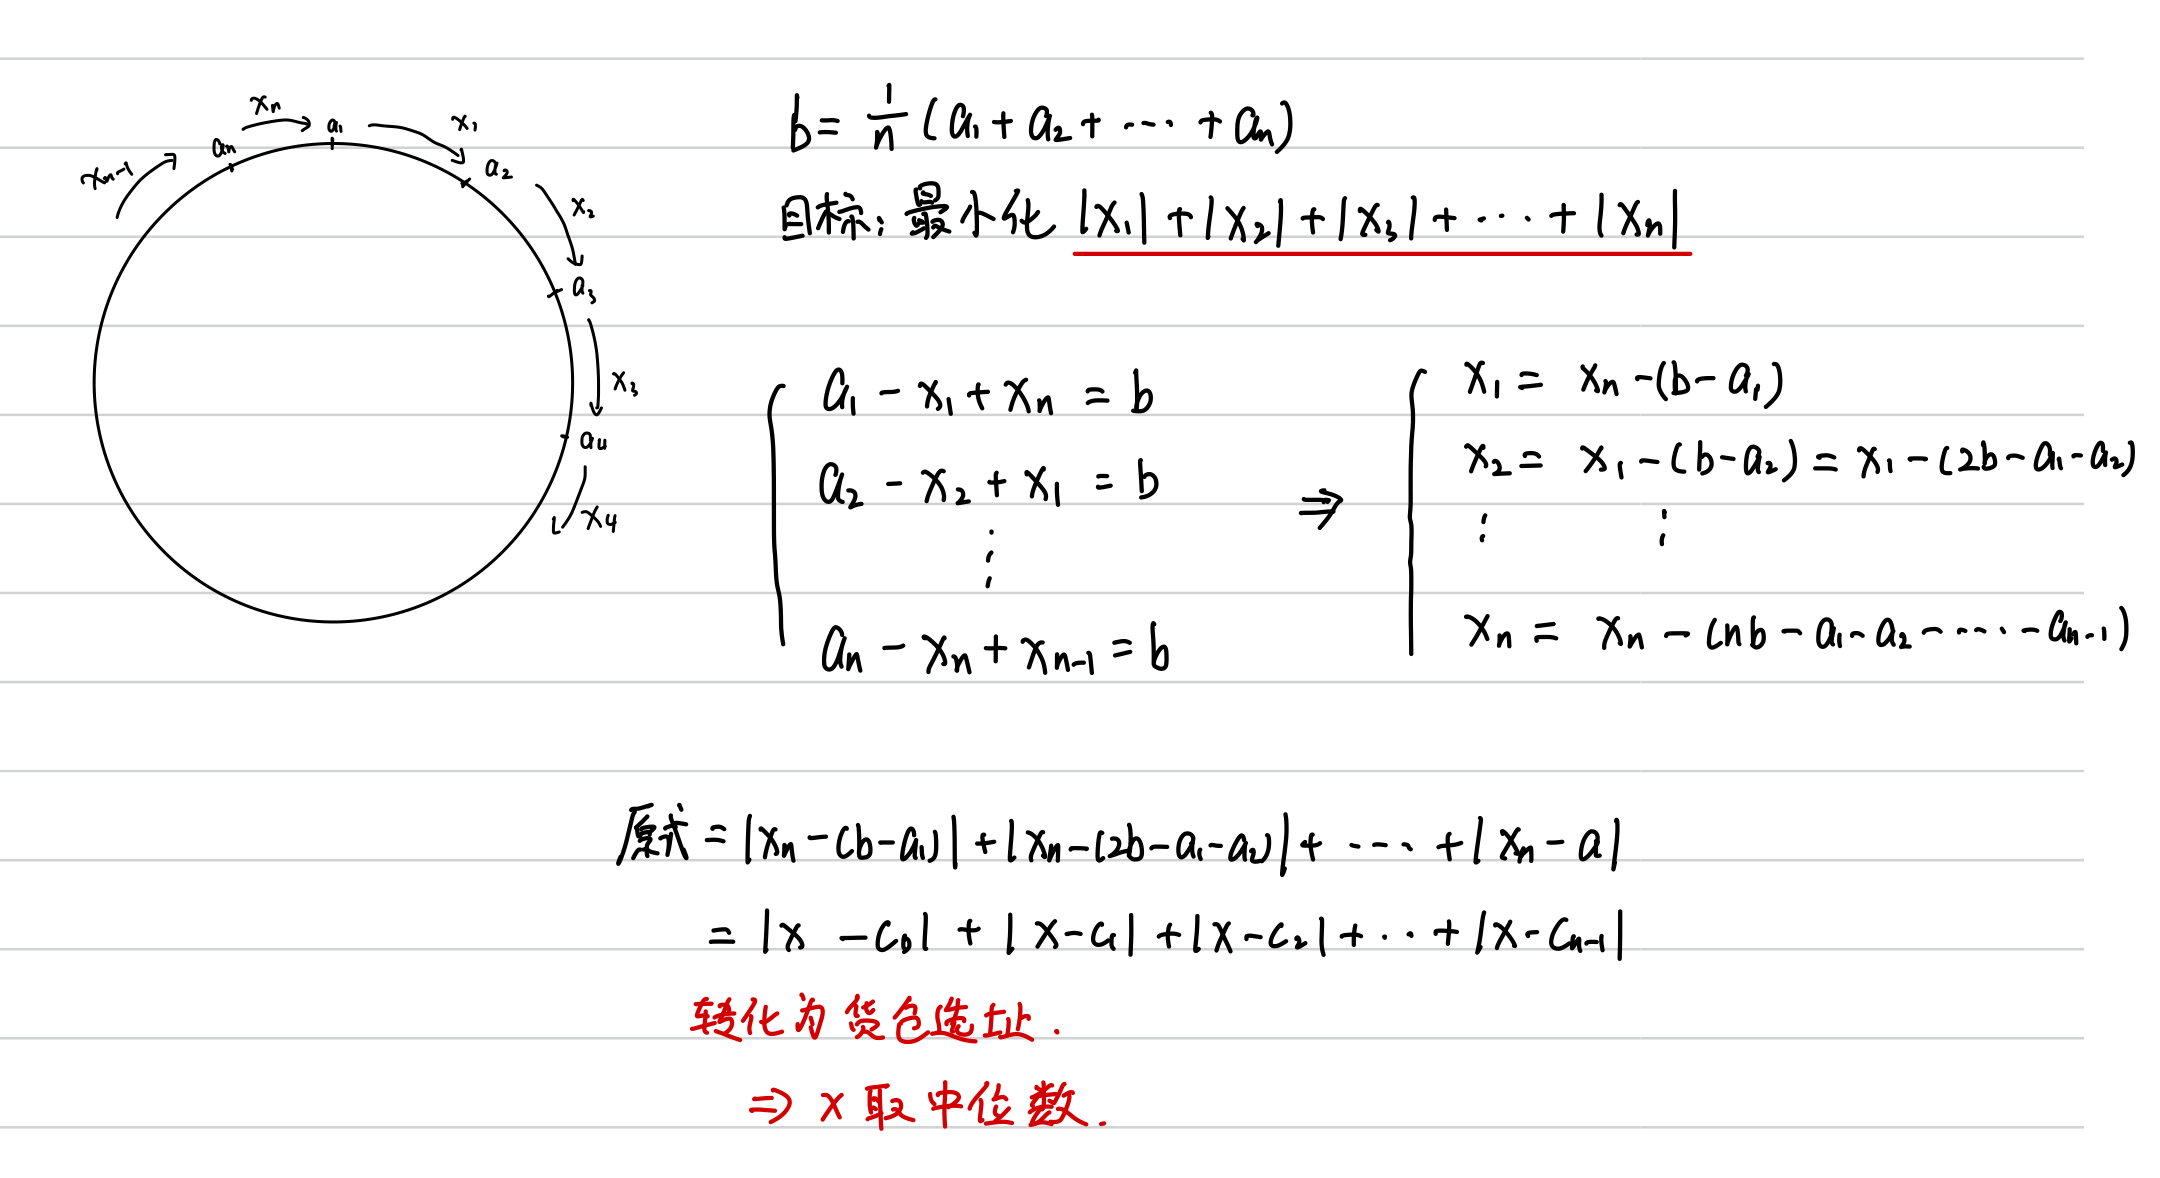 xₙ₋₁ xₙ a₁ x₁
aₙ a₂
x₂
a₃
x₃
a₄
x₄
b = 1/n (a₁ + a₂ + ⋯ + aₙ)
目标: 最小化 |x₁| + |x₂| + |x₃| + ⋯ + |xₙ|
a₁ - x₁ + xₙ = b
a₂ - x₂ + x₁ = b
⋮
aₙ - xₙ + xₙ₋₁ = b
⇒
x₁ = xₙ - (b - a₁)
x₂ = x₁ - (b - a₂) = x₁ - (2b - a₁ - a₂)
⋮ ⋮
xₙ = xₙ - (nb - a₁ - a₂ - ⋯ - aₙ₋₁)
原式 = |xₙ - (b - a₁)| + |xₙ - (2b - a₁ - a₂)| + ⋯ + |xₙ - a|
= |x - c₀| + |x - c₁| + |x - c₂| + ⋯ + |x - cₙ₋₁|
转化为货仓选址.
⇒ x 取中位数.